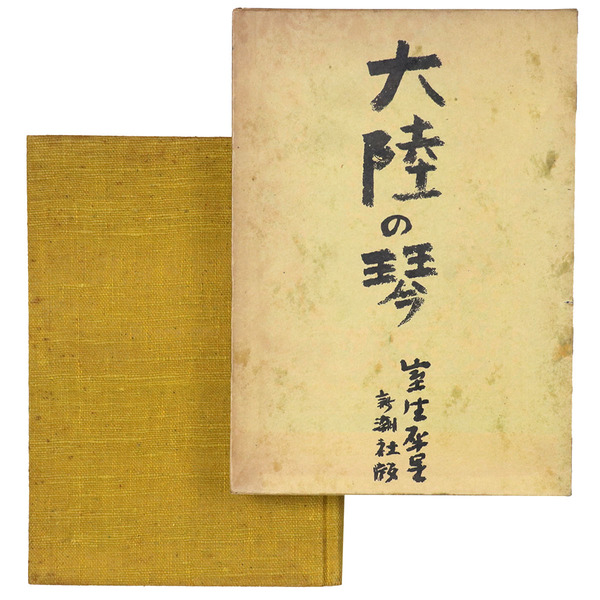 大陸の琴
室生犀星
新潮社版